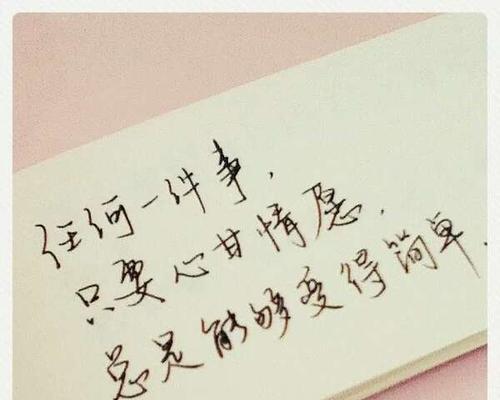 任何一件事,
只要心甘情愿,
总是能够变得简单.